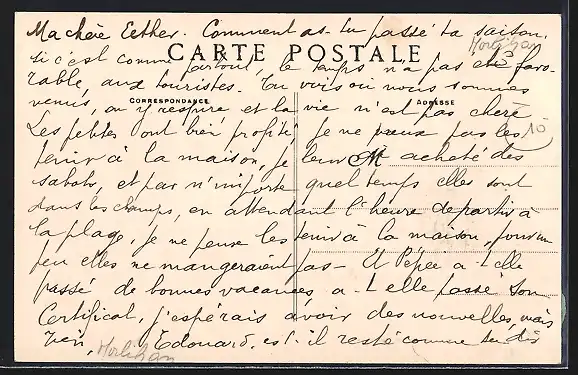 Ma chère Esther. Comment as-tu passé ta saison,
Morbihan
CARTE POSTALE
si c'est comme partout, le temps n'a pas été favo-
rable, aux touristes. Tu vois où nous sommes
CORRESPONDANCE
ADRESSE
venus, on y respire et la vie n'est pas chère
Les petites ont bien profité, je ne peux pas les
10
tenir à la maison, je leur ai acheté des
sabots, et par n'importe quel temps elles sont
dans les champs, en attendant l'heure de partir à
la plage, je ne peux les tenir à la maison, pour un
peu elles ne mangeraient pas — Et Pépée a-t-elle
passé de bonnes vacances a-t-elle passé son
Certificat, j'espérais avoir des nouvelles, mais
rien, Edouard, est-il resté comme tu dis
Morbihan